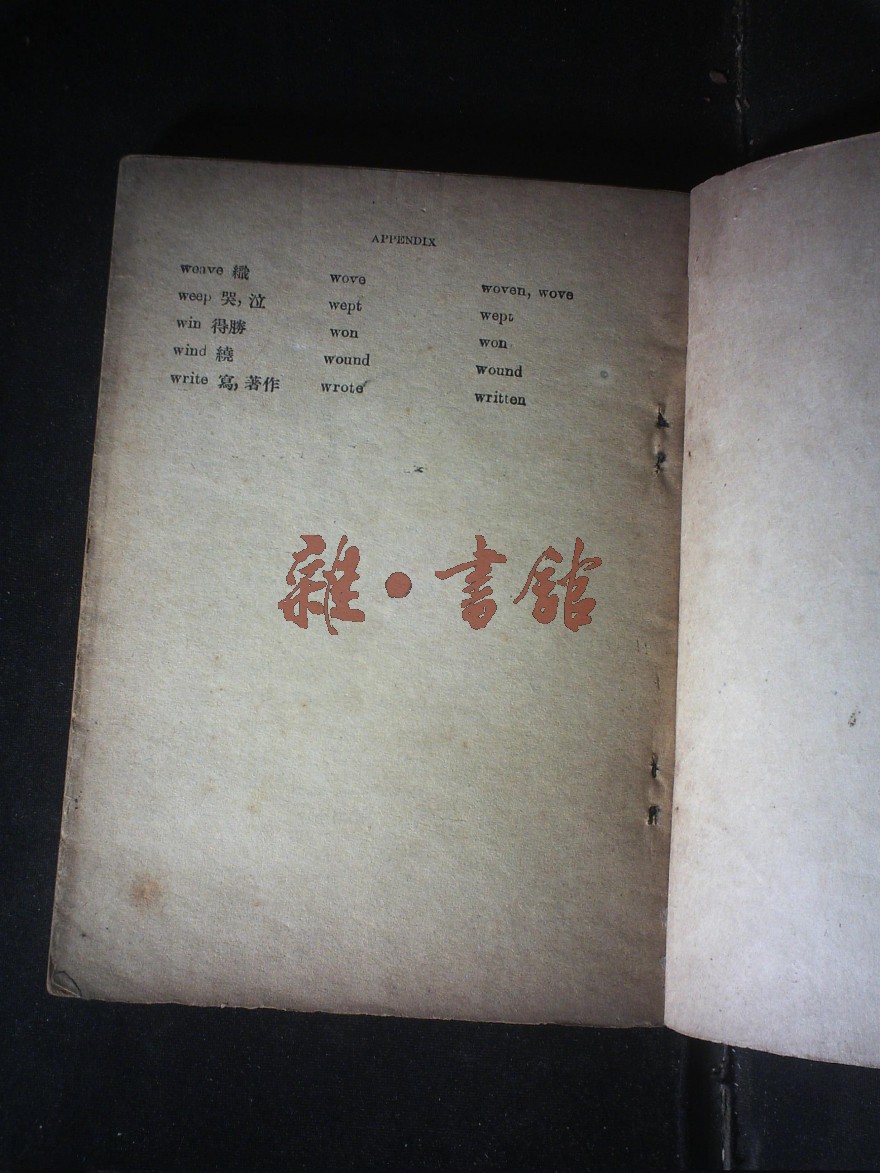 APPENDIX
weave 織 wove woven, wove
weep 哭, 泣 wept wept
win 得勝 won won
wind 繞 wound wound
write 寫, 著作 wrote written
雜·書館